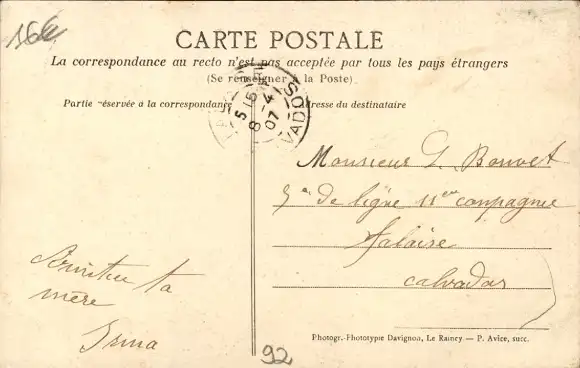 16c
CARTE POSTALE
La correspondance au recto n'est pas acceptée par tous les pays étrangers
(Se renseigner à la Poste)
Partie réservée à la correspondance
Adresse du destinataire
8 -4
07
Monsieur G. Bonvet
5e de ligne 11eme conpagnie
falaise
calvados
ta
mère
Irma
Photogr.-Phototypie Davignon, Le Raincy — P. Avice, succ.
92